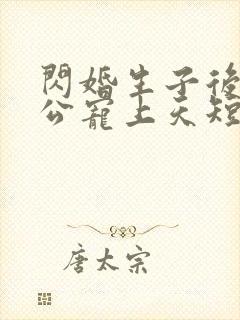 閃婚生子後
公寵上天短
唐太宗